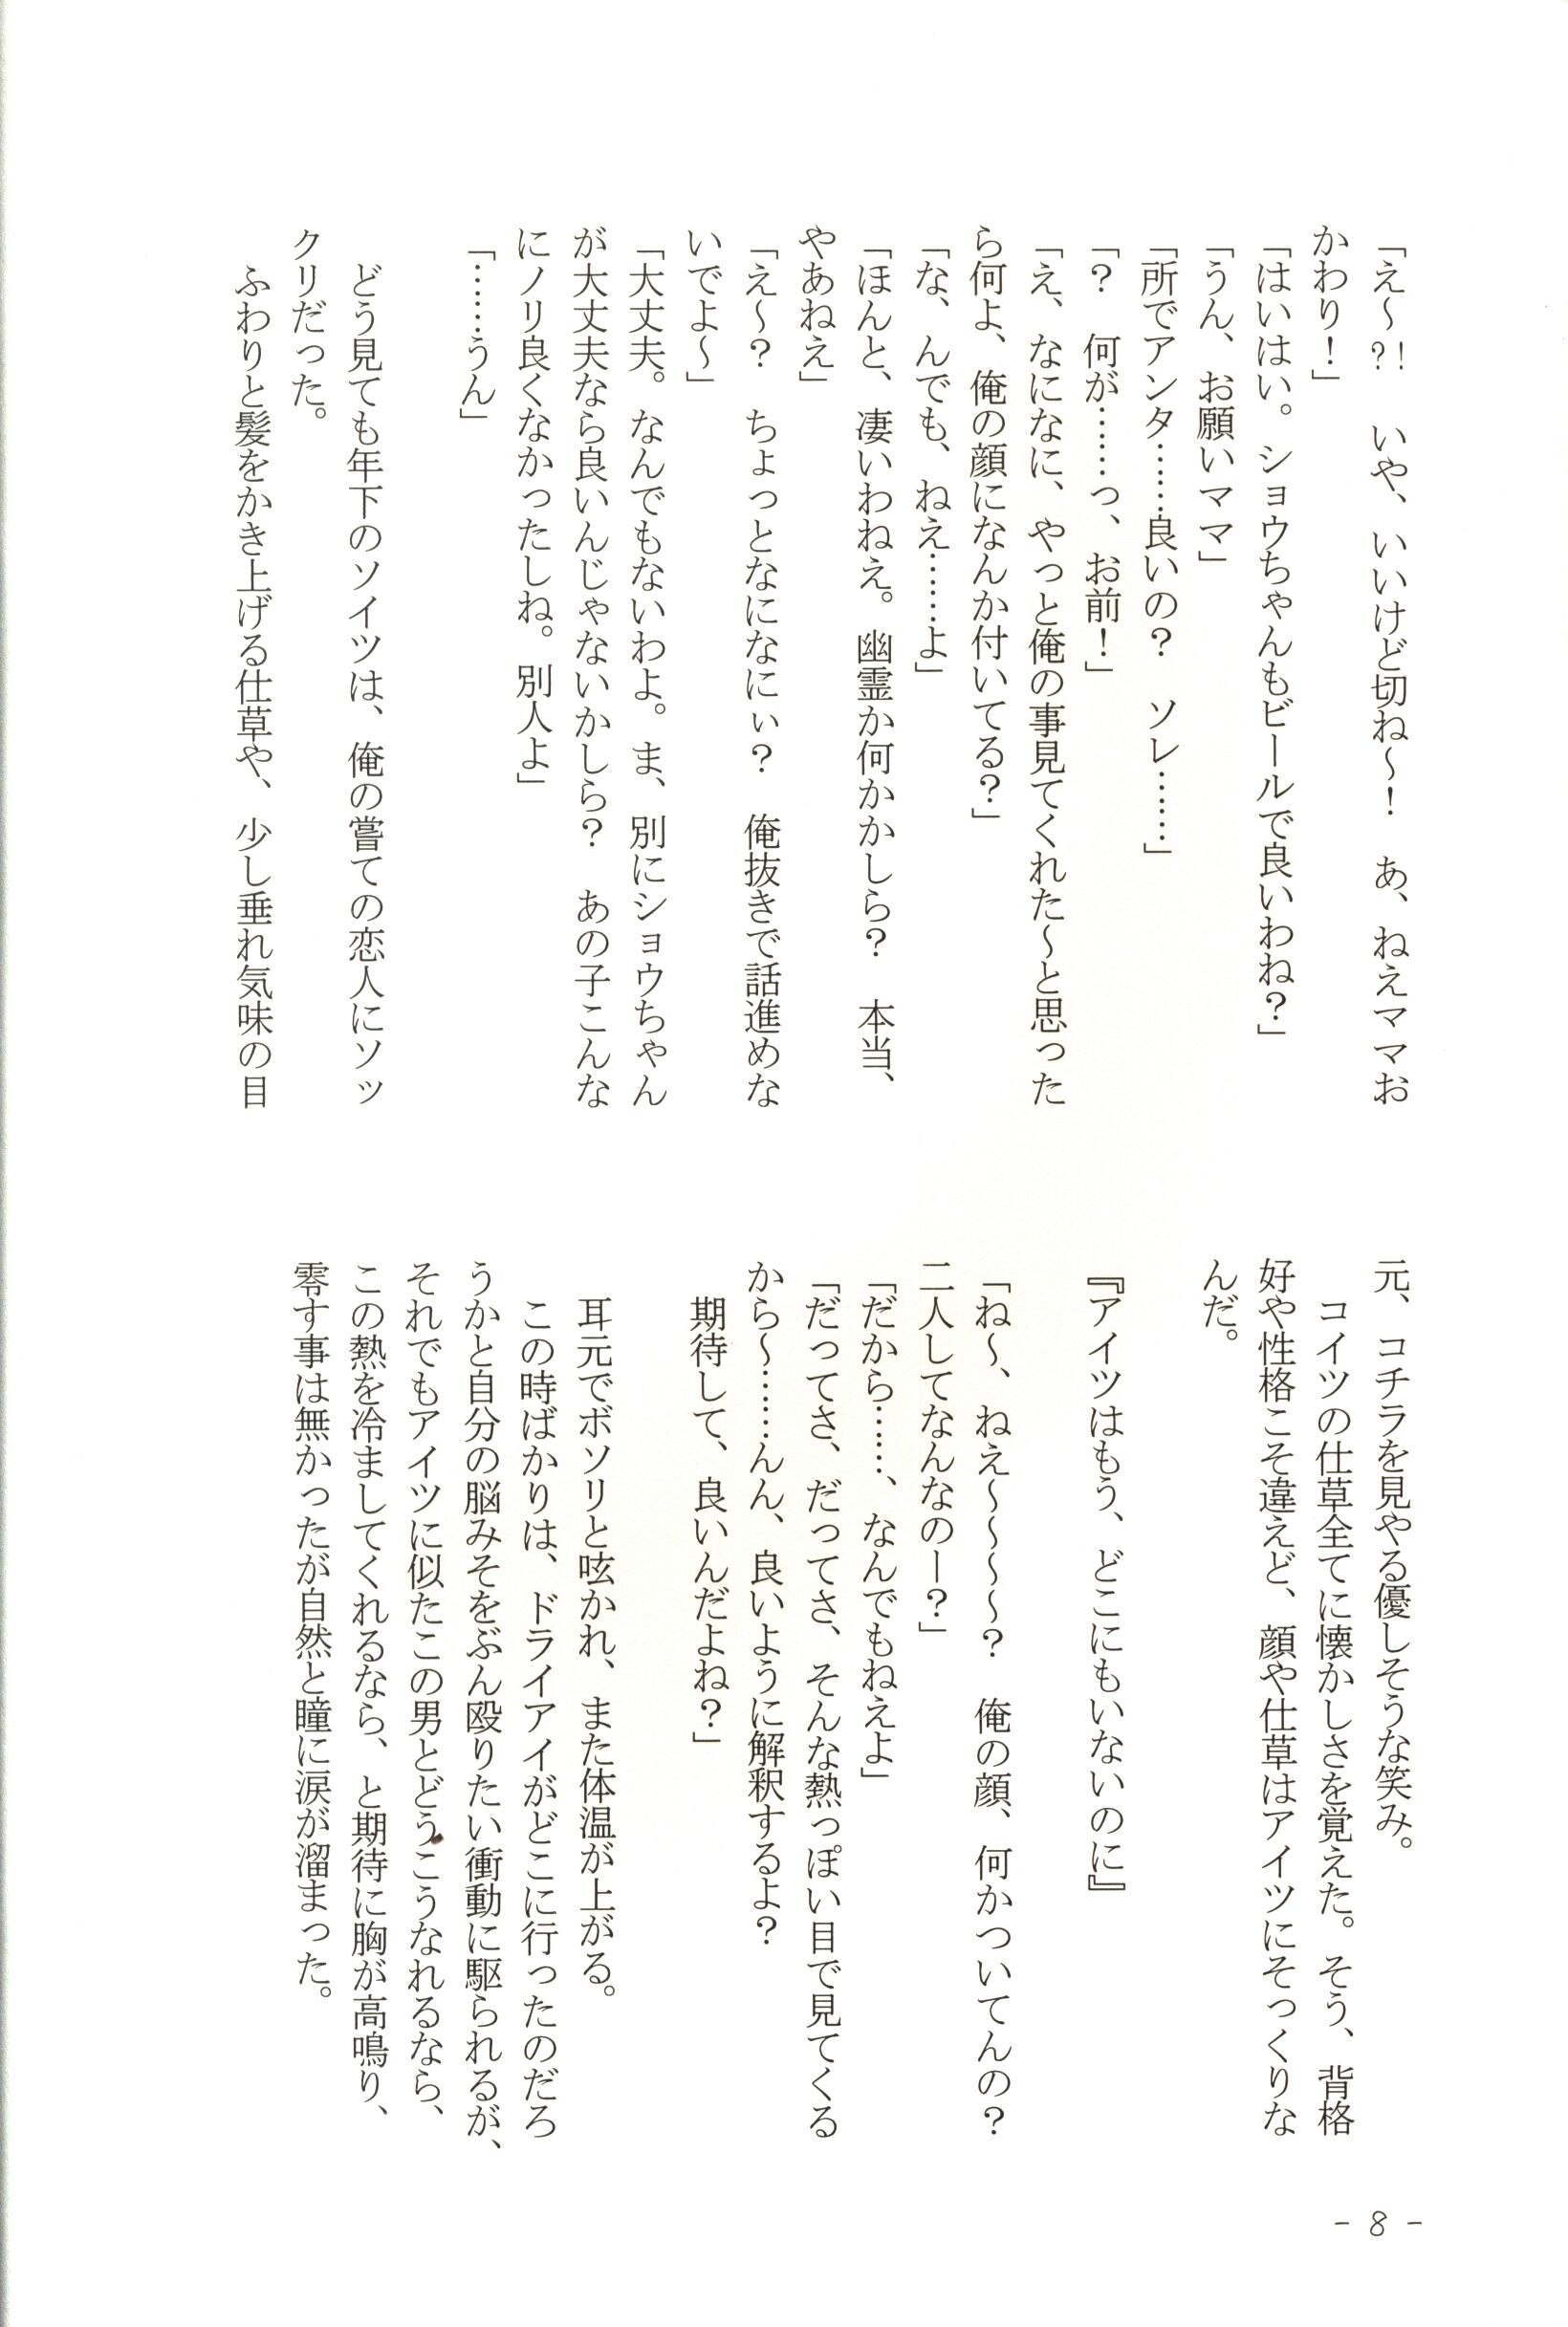 「え～?!　いや、いいけど切ね～！　あ、ねえママお
かわり！」
「はいはい。ショウちゃんもビールで良いわね？」
「うん、お願いママ」
「所でアンタ……良いの？　ソレ……」
「？　何が……っ、お前！」
「え、なになに、やっと俺の事見てくれた～と思った
ら何よ、俺の顔になんか付いてる？」
「な、んでも、ねえ……よ」
「ほんと、凄いわねえ。幽霊か何かかしら？　本当、
やあねえ」
「え～？　ちょっとなになにぃ？　俺抜きで話進めな
いでよ～」
「大丈夫。なんでもないわよ。ま、別にショウちゃん
が大丈夫なら良いんじゃないかしら？　あの子こんな
にノリ良くなかったしね。別人よ」
「……うん」
　どう見ても年下のソイツは、俺の嘗ての恋人にソッ
クリだった。
　ふわりと髪をかき上げる仕草や、少し垂れ気味の目
元、コチラを見やる優しそうな笑み。
　コイツの仕草全てに懐かしさを覚えた。そう、背格
好や性格こそ違えど、顔や仕草はアイツにそっくりな
んだ。
『アイツはもう、どこにもいないのに』
「ね～、ねえ～～～～？　俺の顔、何かついてんの？
二人してなんなのー？」
「だから……、なんでもねえよ」
「だってさ、だってさ、そんな熱っぽい目で見てくる
から～……んん、良いように解釈するよ？
　期待して、良いんだよね？」
　耳元でボソリと呟かれ、また体温が上がる。
　この時ばかりは、ドライアイがどこに行ったのだろ
うかと自分の脳みそをぶん殴りたい衝動に駆られるが、
それでもアイツに似たこの男とどうこうなれるなら、
この熱を冷ましてくれるなら、と期待に胸が高鳴り、
零す事は無かったが自然と瞳に涙が溜まった。
- 8 -